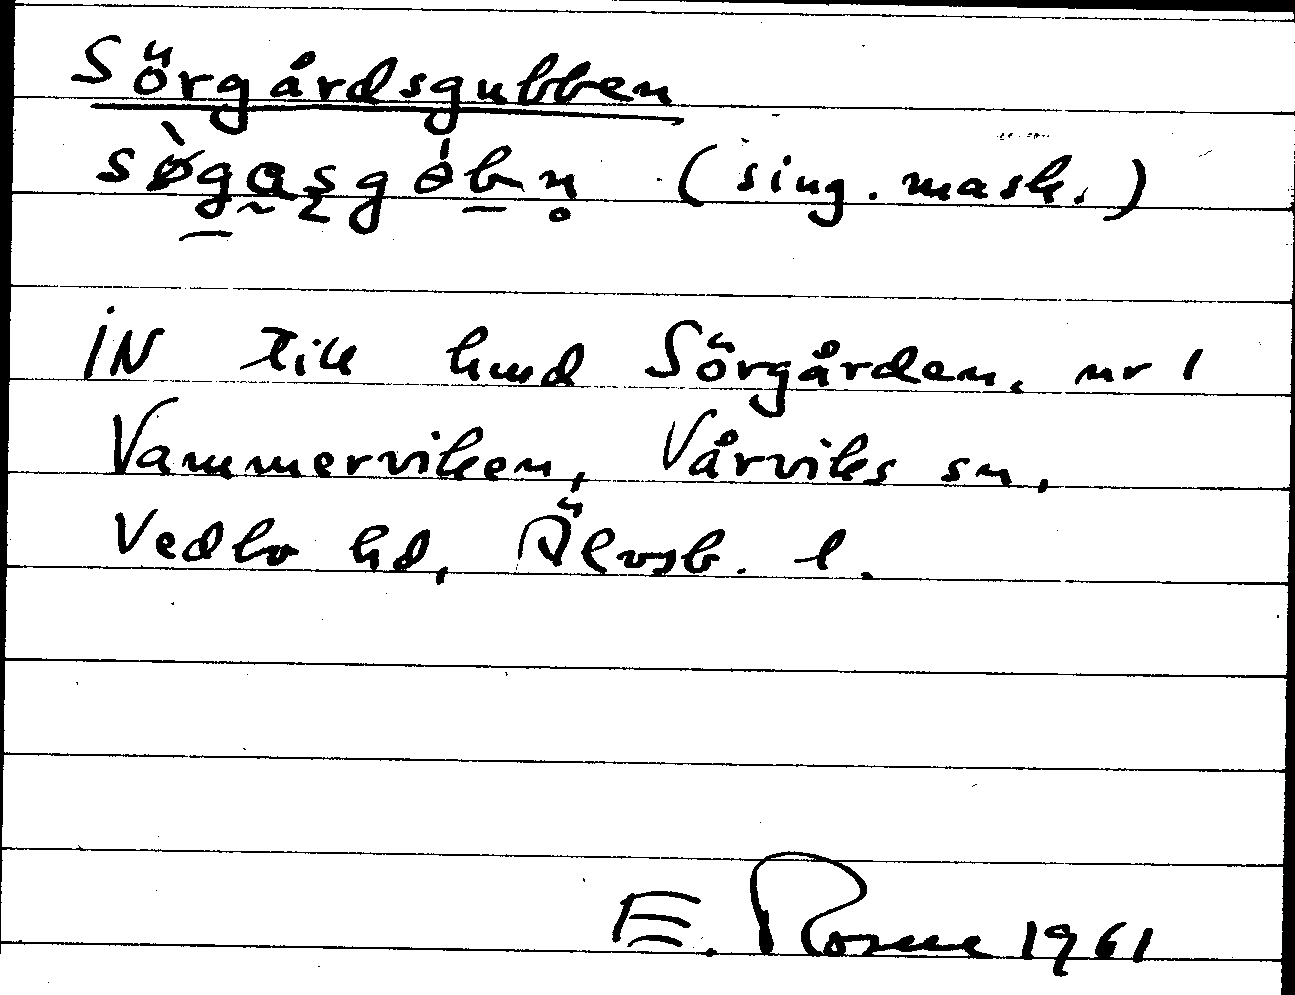 Sörgårdsgubben
(sing. mask.)
IN till hmd Sörgården, nr 1
Vammerviken, Vårviks sn,
Vedbo hd, Älvsb. l.
E. Rosell 1961